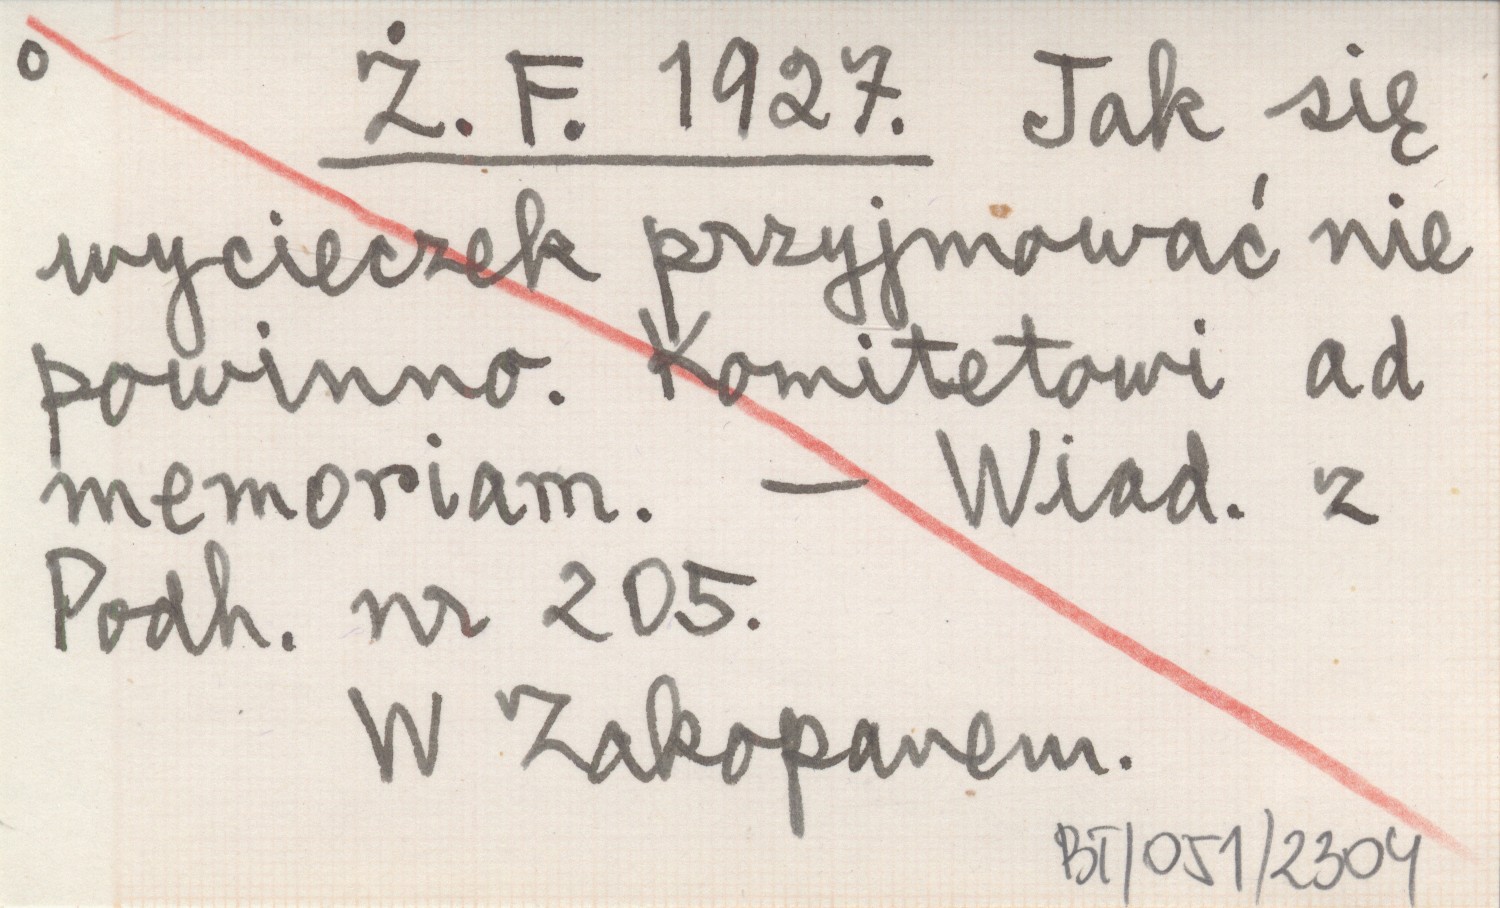 o Ż. F. 1927. Jak się
wycieczek przyjmować nie
powinno. Komitetowi ad
memoriam. — Wiad. z
Podh. nr 205.
W Zakopanem.
BT/051/2304